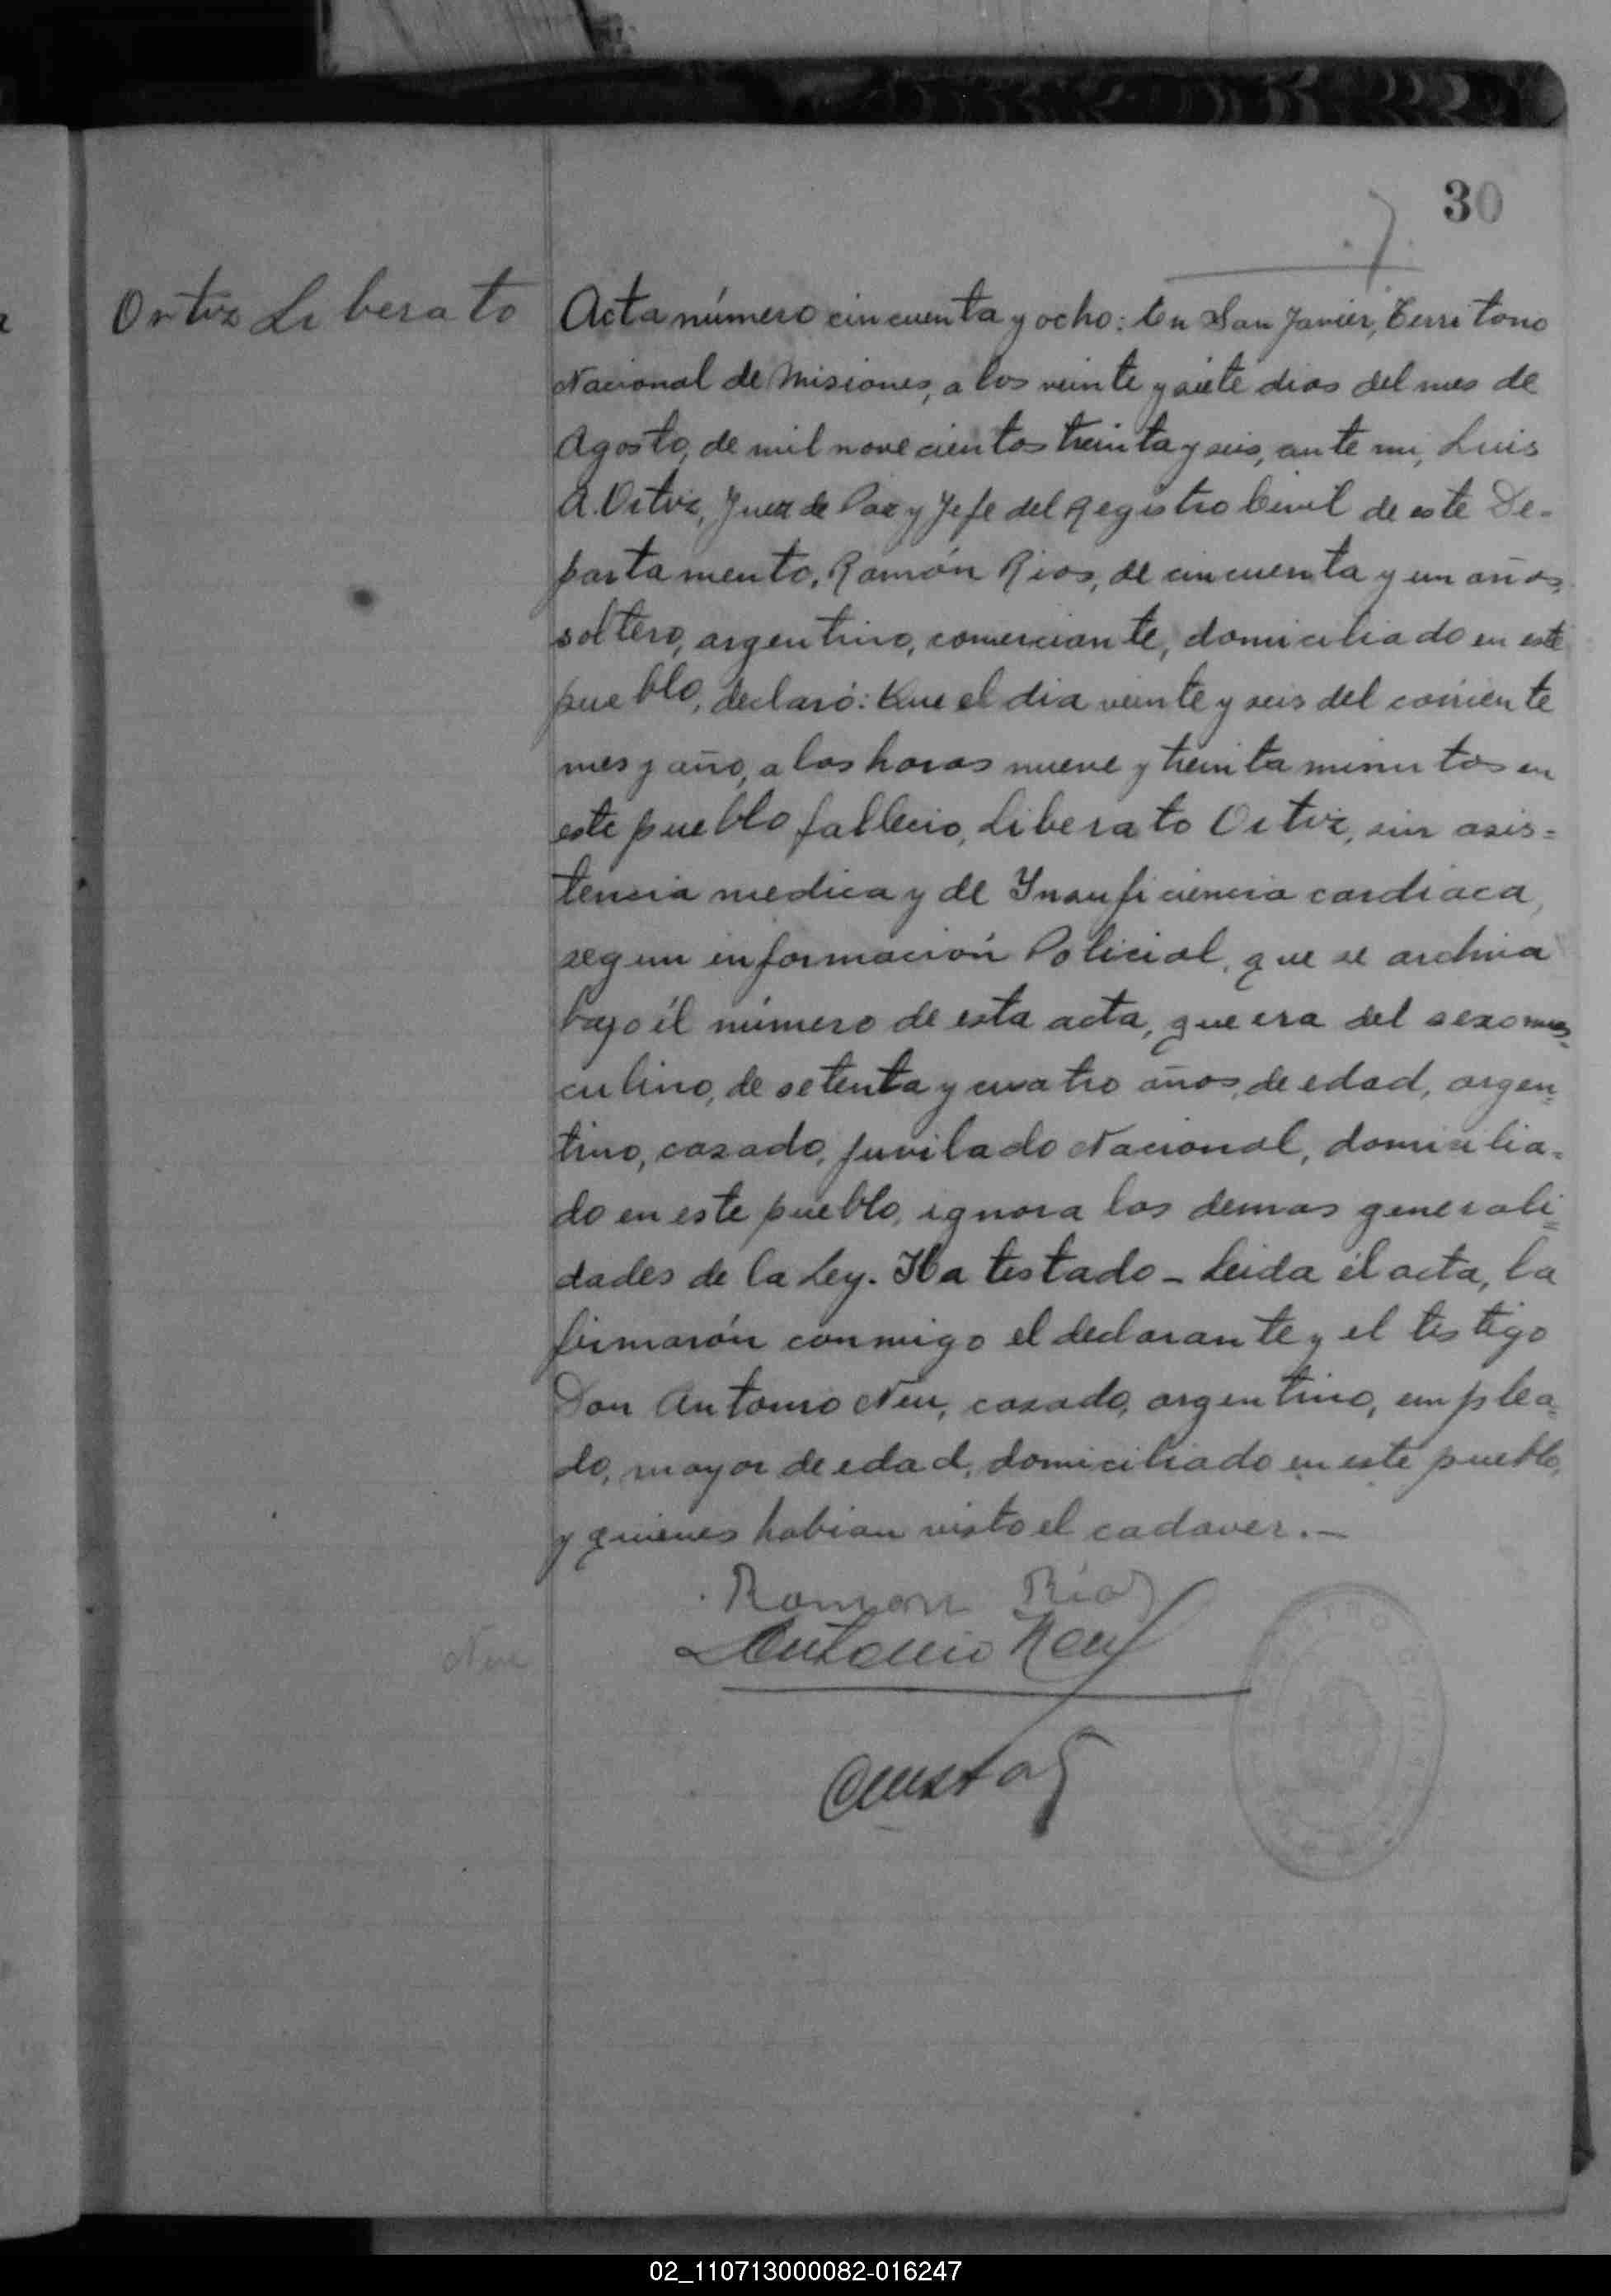 30
Ortiz Liberato
Acta número cincuenta y ocho: En San Javier, Territorio
Nacional de Misiones, a los veinte y siete dias del mes de
Agosto, de mil novecientos treinta y seis, ante mi, Luis
A. Ortiz, Juez de Paz y Jefe del Registro Civil de este De-
partamento, Ramón Rios, de cincuenta y un años,
soltero, argentino, comerciante, domiciliado en este
pueblo, declaró: Que el dia veinte y seis del corriente
mes y año, a las horas nueve y treinta minutos en
este pueblo fallecio, Liberato Ortiz, sin asis=
tencia medica y de Insuficiencia cardiaca,
segun información Policial, que se archiva
bajo él número de esta acta, que era del sexo mas=
culino, de setenta y cuatro años, de edad, argen=
tino, casado, Juvilado Nacional, domicilia=
do en este pueblo, ignora las demas generali=
dades de la Ley. Ha testado - Leida él acta, la
firmarón conmigo el declarante y el testigo
Don Antonio Neu, casado, argentino, emplea=
do, mayor de edad, domiciliado en este pueblo,
y quienes habian visto el cadaver.-
Ramon Rios
Antonio Neu
Neu
02_110713000082-016247